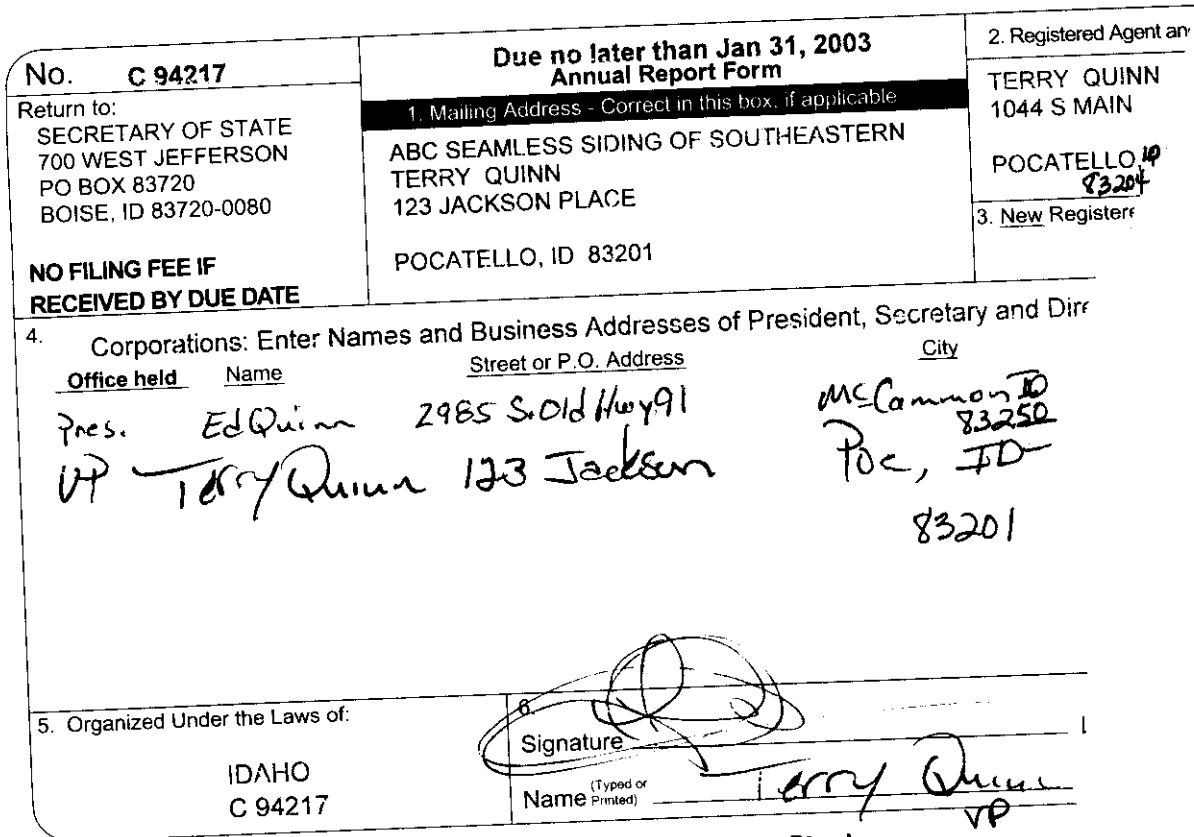 No. C 94217
Return to:
SECRETARY OF STATE
700 WEST JEFFERSON
PO BOX 83720
BOISE, ID 83720-0080
NO FILING FEE IF
RECEIVED BY DUE DATE
Due no later than Jan 31, 2003
Annual Report Form
1. Mailing Address - Correct in this box, if applicable
ABC SEAMLESS SIDING OF SOUTHEASTERN
TERRY QUINN
123 JACKSON PLACE
POCATELLO, ID 83201
2. Registered Agent an
TERRY QUINN
1044 S MAIN
POCATELLO, ID
83204
3. New Register
4. Corporations: Enter Names and Business Addresses of President, Secretary and Dire
Office held Name Street or P.O. Address City
Pres. Ed Quinn 2985 S. Old Hwy 91 McCammon ID
83250
VP Terry Quinn 123 Jackson Poc, ID
83201
5. Organized Under the Laws of:
IDAHO
C 94217
6.
Signature
Name (Typed or Printed) Terry Quinn
VP